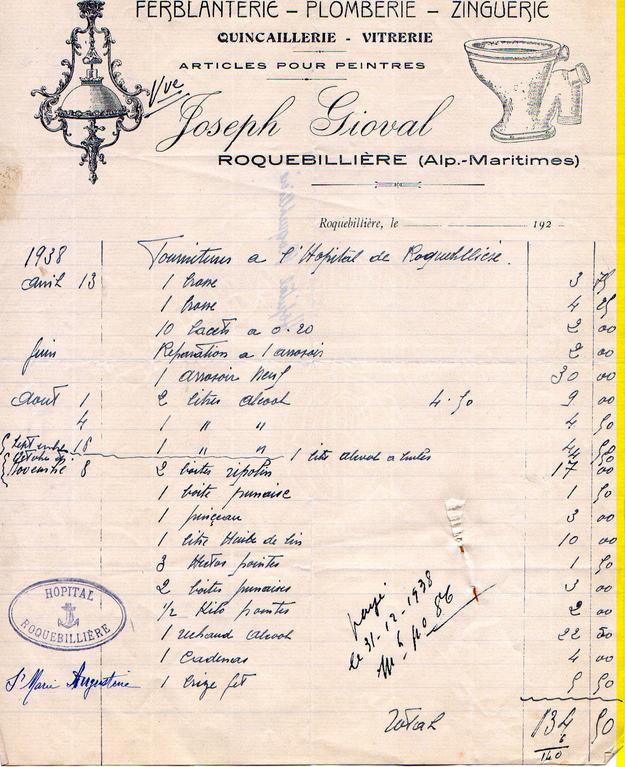 FERBLANTERIE – PLOMBERIE – ZINGUERIE
QUINCAILLERIE - VITRERIE
ARTICLES POUR PEINTRES
Vve
Joseph Gioval
ROQUEBILLIÈRE (Alp.-Maritimes)
Roquebillière, le 192
1938 Fournitures a l'Hopital de Roquebilliere.
avril 13 1 brosse 3 75
1 brosse 4 25
10 lacets a 0.20 2 00
Juin Reparation a 1 arrosoir 2 00
1 arrosoir neuf 30 00
aout 1 2 litres alcool 4.50 9 00
4 1 " " 4 50
Septembre 18 1 " " 4 50
1 lite alcool a brules
Novembre 8 2 boites ripolin 17 00
1 boite punaise 1 50
1 pinçeau 3 00
1 litre Huile de lin 10 00
3 Hectos pointes 1 50
2 boites punaises 3 00
1/2 Kilo pointes 2 00
1 rechaud alcool 22 50
1 Cadenas 4 00
1 5 50
payé
le 31-12-1938
86
HÔPITAL
ROQUEBILLIÈRE
Sr Marie Augustine
Total 134 50
6
140